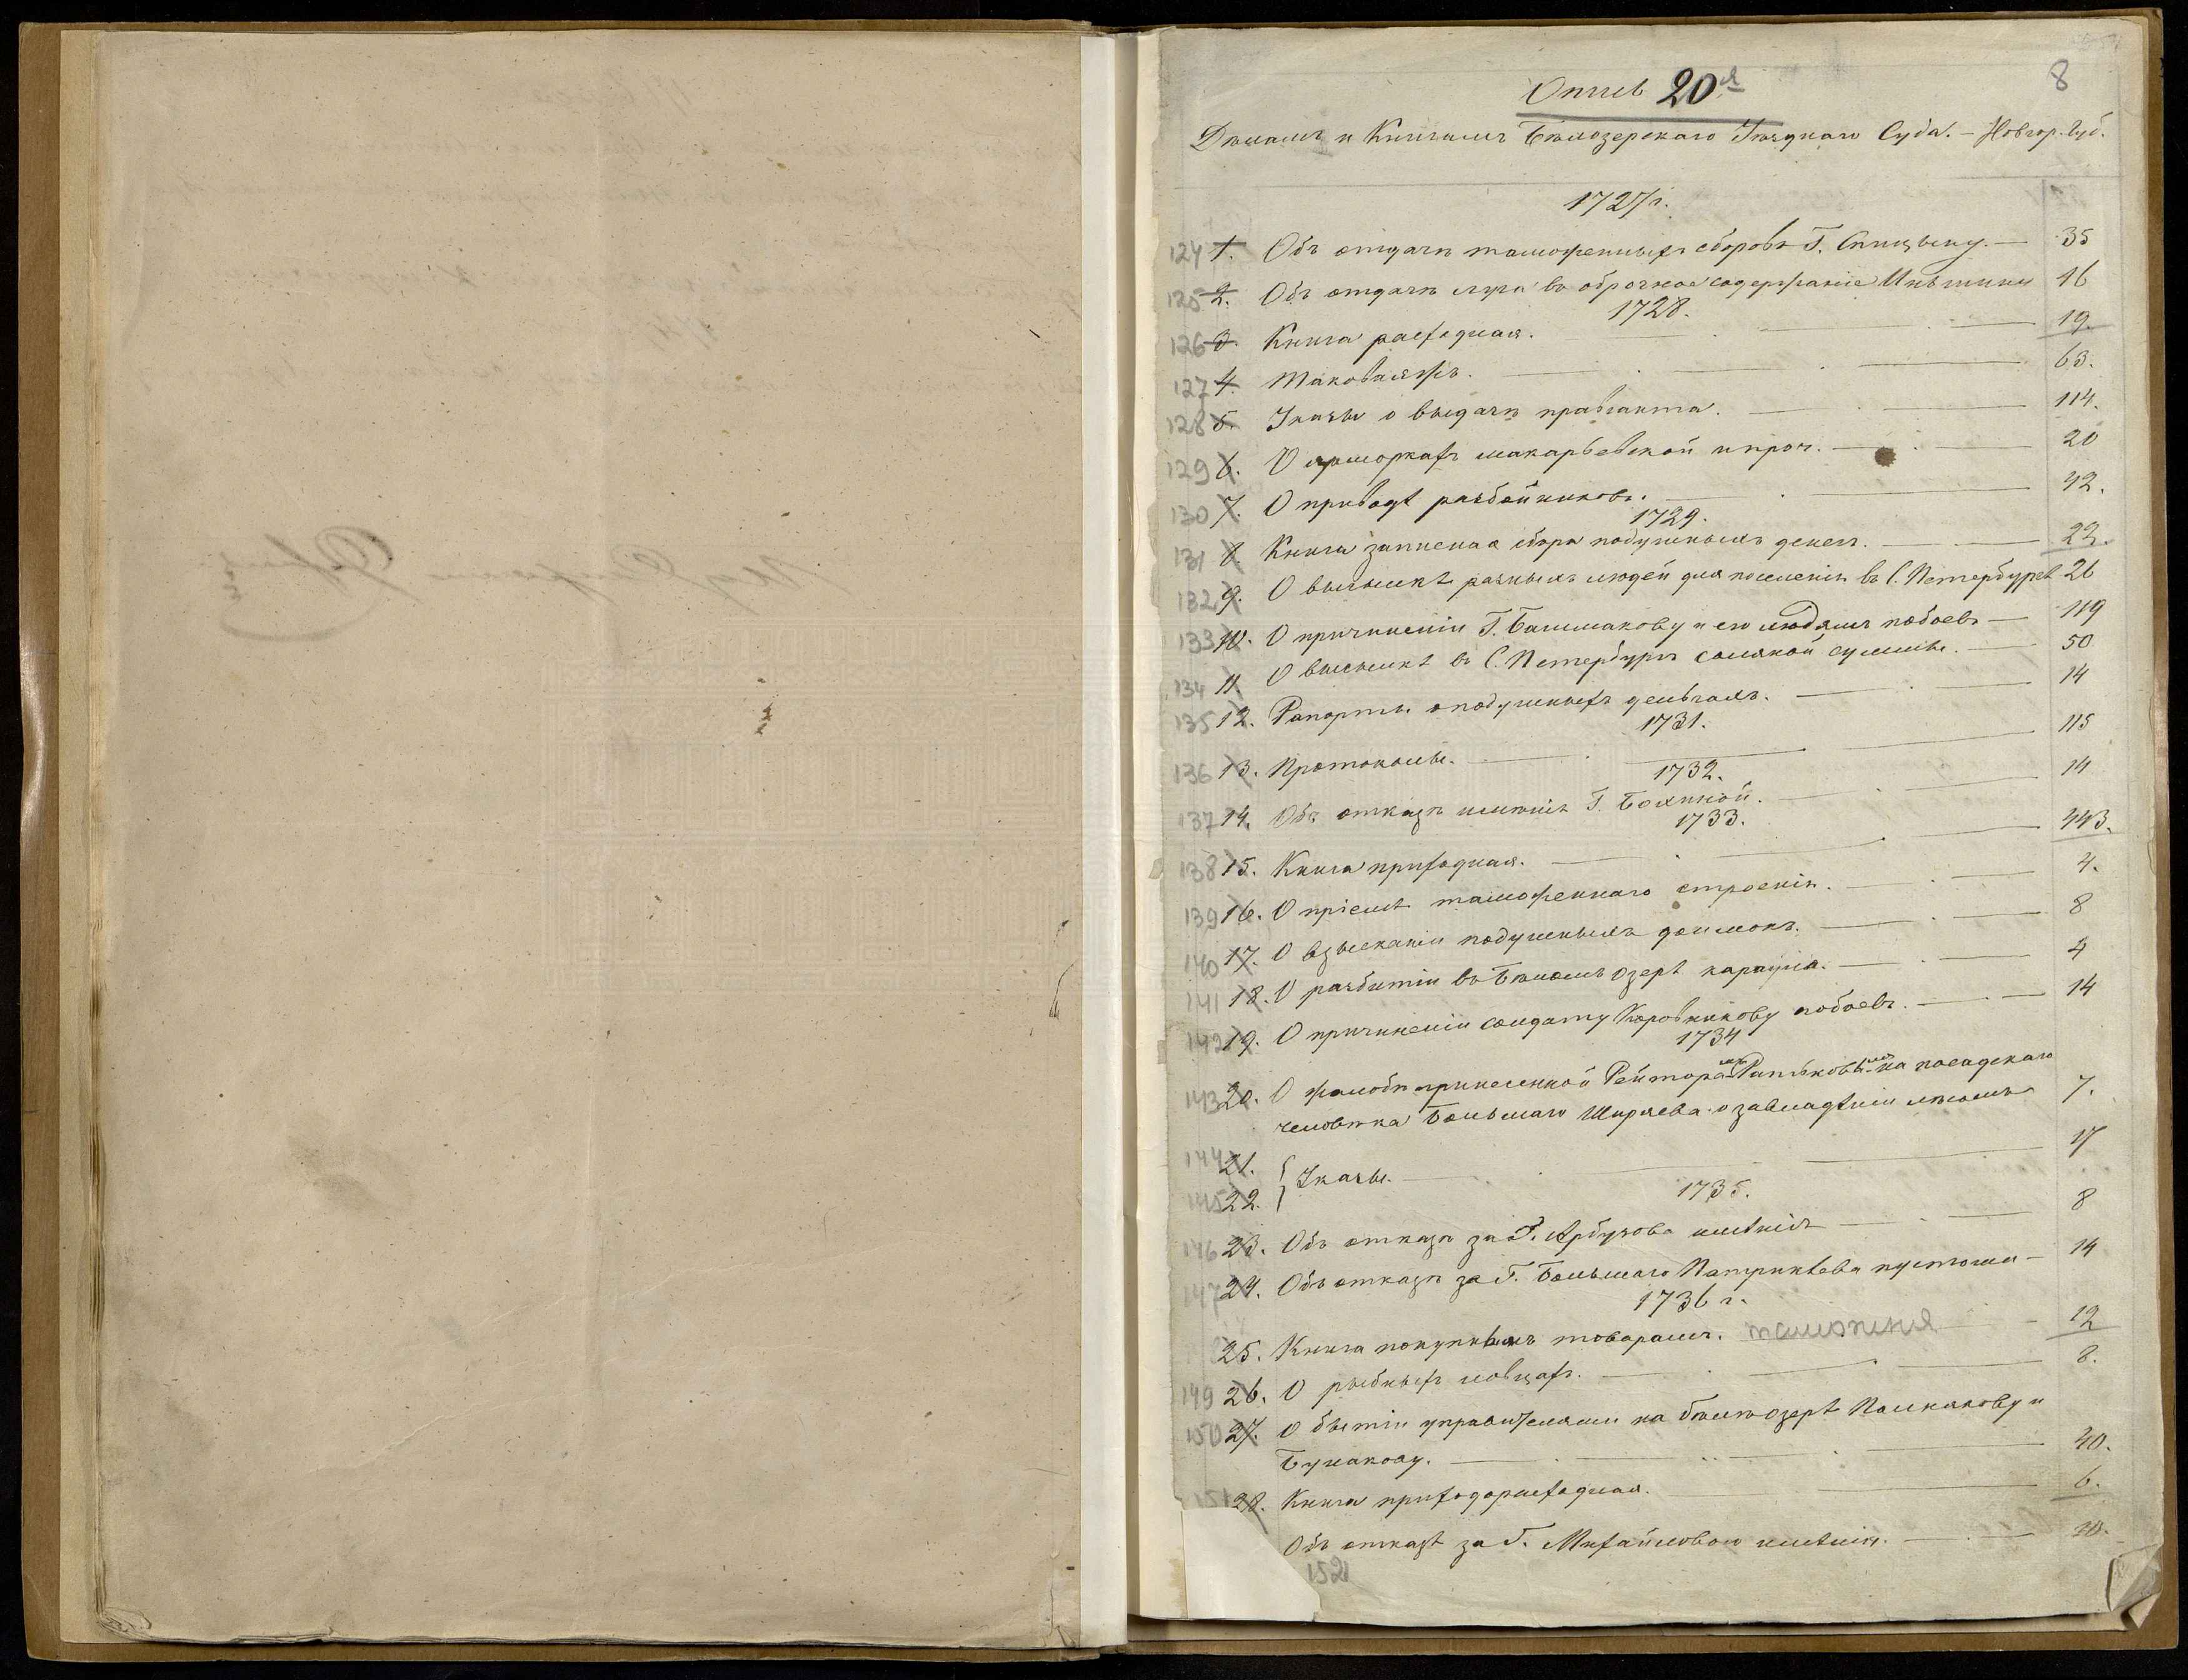 8
Опись 20я
Дѣламъ и Книгамъ Бѣлозерскаго Уѣзднаго Суда. – Новгор. Губ.
1727 г.
124 1. Объ отдачѣ таможенныхъ сборовъ Г. Спицыну. — 35
125 2. Объ отдачѣ луга въ оброчное содержаніе 16
1728.
126 3. Книга расходная. — 19.
127 4. Таковаяжъ. — 63.
128 5. Указы о выдачѣ правіанта. — 114.
129 6. О ярморкахъ макарьевской и проч. — 20
130 7. О приводѣ разбойниковъ. — 42.
1729.
131 8. Книга записная сбора подушныхъ денегъ. — 22.
132 9. О высылкѣ разныхъ людей для поселенія въ С. Петербургѣ 26
133 10. О причиненіи Г. Башмакову и его людямъ побоевъ — 119
134 11. О высылкѣ въ С. Петербургъ соляной суммы. — 50
135 12. Рапорты о подушныхъ деньгахъ. — 14
1731.
136 13. Протоколы. — 115
1732.
137 14. Объ отказѣ имѣнія Г. — 14
1733.
138 15. Книга приходная. — 443.
139 16. О пріемѣ таможеннаго строенія. — 4.
140 17. О взысканіи подушныхъ доимокъ. — 8
141 18. О разбитіи въ Бѣломъ озерѣ караула. — 4
142 19. О причиненіи солдату Коровникову побоевъ. — 14
1734
143 20. О жалобѣ принесенной на посадскаго
человѣка Большаго Ширяева о завладѣніи 7.
144 21.
145 22. } Указы. — 17
1735.
146 23. Объ отказѣ за Г. Арбузова имѣнія — 8
147 24. Объ отказѣ за Г. Большаго Патрикѣева пустоши — 14
1736 г.
25. Книга покупнымъ товарамъ. таможня — 12
149 26. О рыбныхъ ловцахъ. — 8.
150 27. О бытіи управителями на бѣлѣозерѣ и
Бунакову. — 40.
151 28. Книга приходорасходная. — 6.
Объ отказѣ за Г. Михайловою имѣнія. — 20.
152